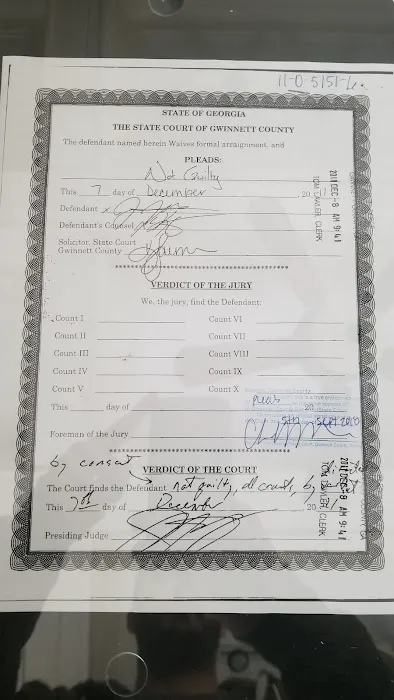 11-O-5151-4
STATE OF GEORGIA
THE STATE COURT OF GWINNETT COUNTY
The defendant named herein Waives formal arraignment, and
PLEADS:
Not Guilty
This 7 day of December 20 11
Defendant x
Defendant's Counsel x
Solicitor, State Court
Gwinnett County
2011 DEC -8 AM 9:41
TOM LAWLER, CLERK
VERDICT OF THE JURY
We, the jury, find the Defendant:
Count I Count VI
Count II Count VII
Count III Count VIII
Count IV Count IX
Count V Count X
This day of 20
Foreman of the Jury
by consent
VERDICT OF THE COURT
The Court finds the Defendant not guilty, all counts, by
This 7th day of December 20 11
Presiding Judge
2011 DEC -8 AM 9:41
TOM LAWLER, CLERK